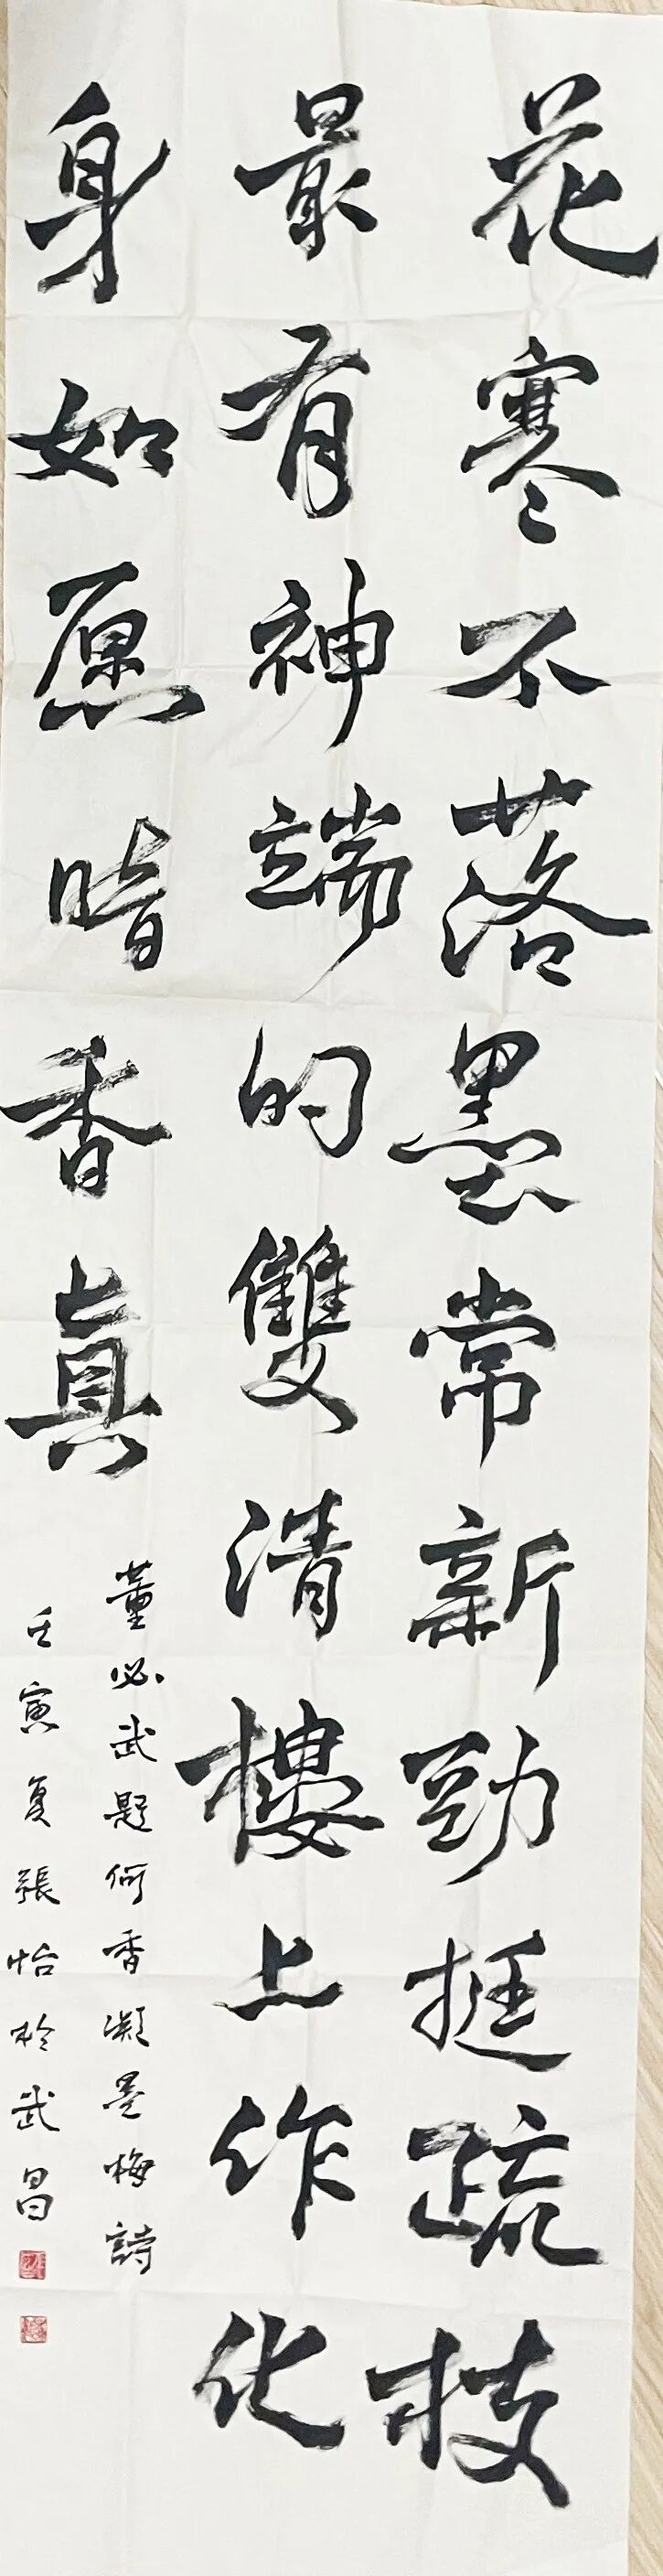 花寒不落墨常新勁挺疏枝
最有神端的雙清樓上作化
身如愿暗香真
董必武題何香凝墨梅詩
壬寅夏張怡於武昌